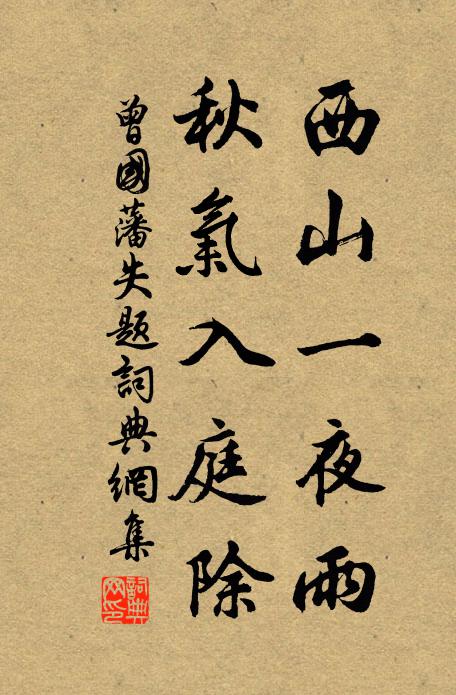 西山一夜雨
秋氣入庭除
曾國藩失題詞典網集
詞典網印